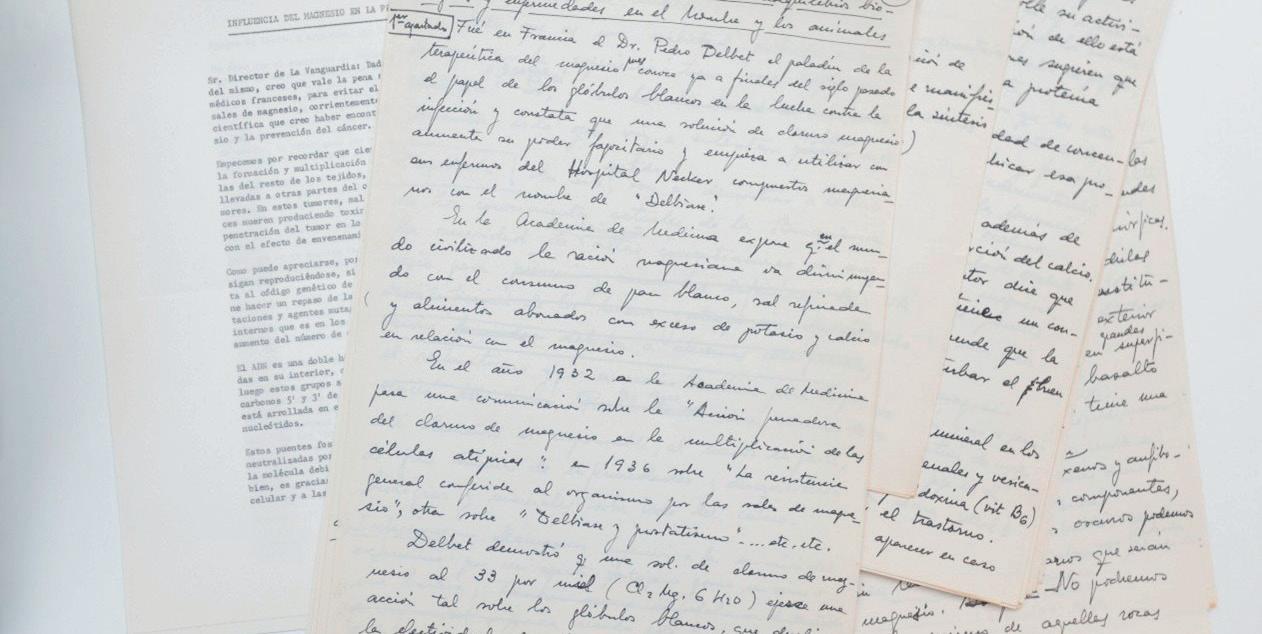 INFLUENCIA DEL MAGNESIO EN LA
Sr. Director de La Vanguardia: Dad
del mismo, creo que vale la pena
médicos franceses, para evitar el
sales de magnesio, corrientemente
científica que creo haber encont
sio y la prevención del cáncer.
Empecemos por recordar que cie
la formación y multiplicación
las del resto de los tejidos,
llevadas a otras partes del o
mores. En estos tumores, mal
ces mueren produciendo toxi
penetración del tumor en lo
con el efecto de envenenami
Como puede apreciarse, po
sigan reproduciéndose, si
ta al código genético de
ne hacer un repaso de la
taciones y agentes muta
internos que es en los
aumento del número de
El ADN es una doble h
das en su interior,
luego estos grupos a
carbonos 5' y 3' de
está arrollada en e
nucleótidos.
Estos puentes fos
neutralizadas po
la molécula debi
bien, es gracia
celular y a las
enfermedades en el hombre y los animales
1er apartado
Fué en Francia el Dr. Pedro Delbet el paladín de la
terapéutica del magnesio pues conoce ya a finales del siglo pasado
el papel de los glóbulos blancos en la lucha contra la
infección y constata que una solución de cloruro magnesio
aumenta su poder fagocitario y empieza a utilizar con
sus enfermos del Hospital Necker, compuestos magnesia-
nos con el nombre de "Delbiase".
En la Academia de Medicina expone q. en el mun-
do civilizado la ración magnesiana va disminuyen-
do con el consumo de pan blanco, sal refinada
y alimentos abonados con exceso de potasio y calcio
en relación con el magnesio.
En el año 1932 a la Academia de Medicina
pasa una comunicación sobre la "Acción frenadora
del cloruro de magnesio en la multiplicación de las
células atípicas": en 1936 sobre "La resistencia
general conferida al organismo por las sales de magne-
sio"; otra sobre "Delbiase y prostatismo"-... etc. etc.
Delbet demostró q. una sol. de cloruro de mag-
nesio al 33 por mil (Cl2 Mg. 6 H2O) ejerce una
acción tal sobre los glóbulos blancos, que
ción de
e manifies
la síntesis
dad de concen-
además de
ción del calcio.
tor dice que
un con-
ende que la
mineral en los
enales y vesica-
doxina (vit B6)
el trastorno.
aparecer en caso
su activi-
ión de ello está
sugieren que
a proteína
las
exterior
grandes
en superfi-
basalto
tiene una
xenos y anfíbo-
componentes,
oscuros podemos
que serán
No podremos
magnesio.
de aquellas rocas